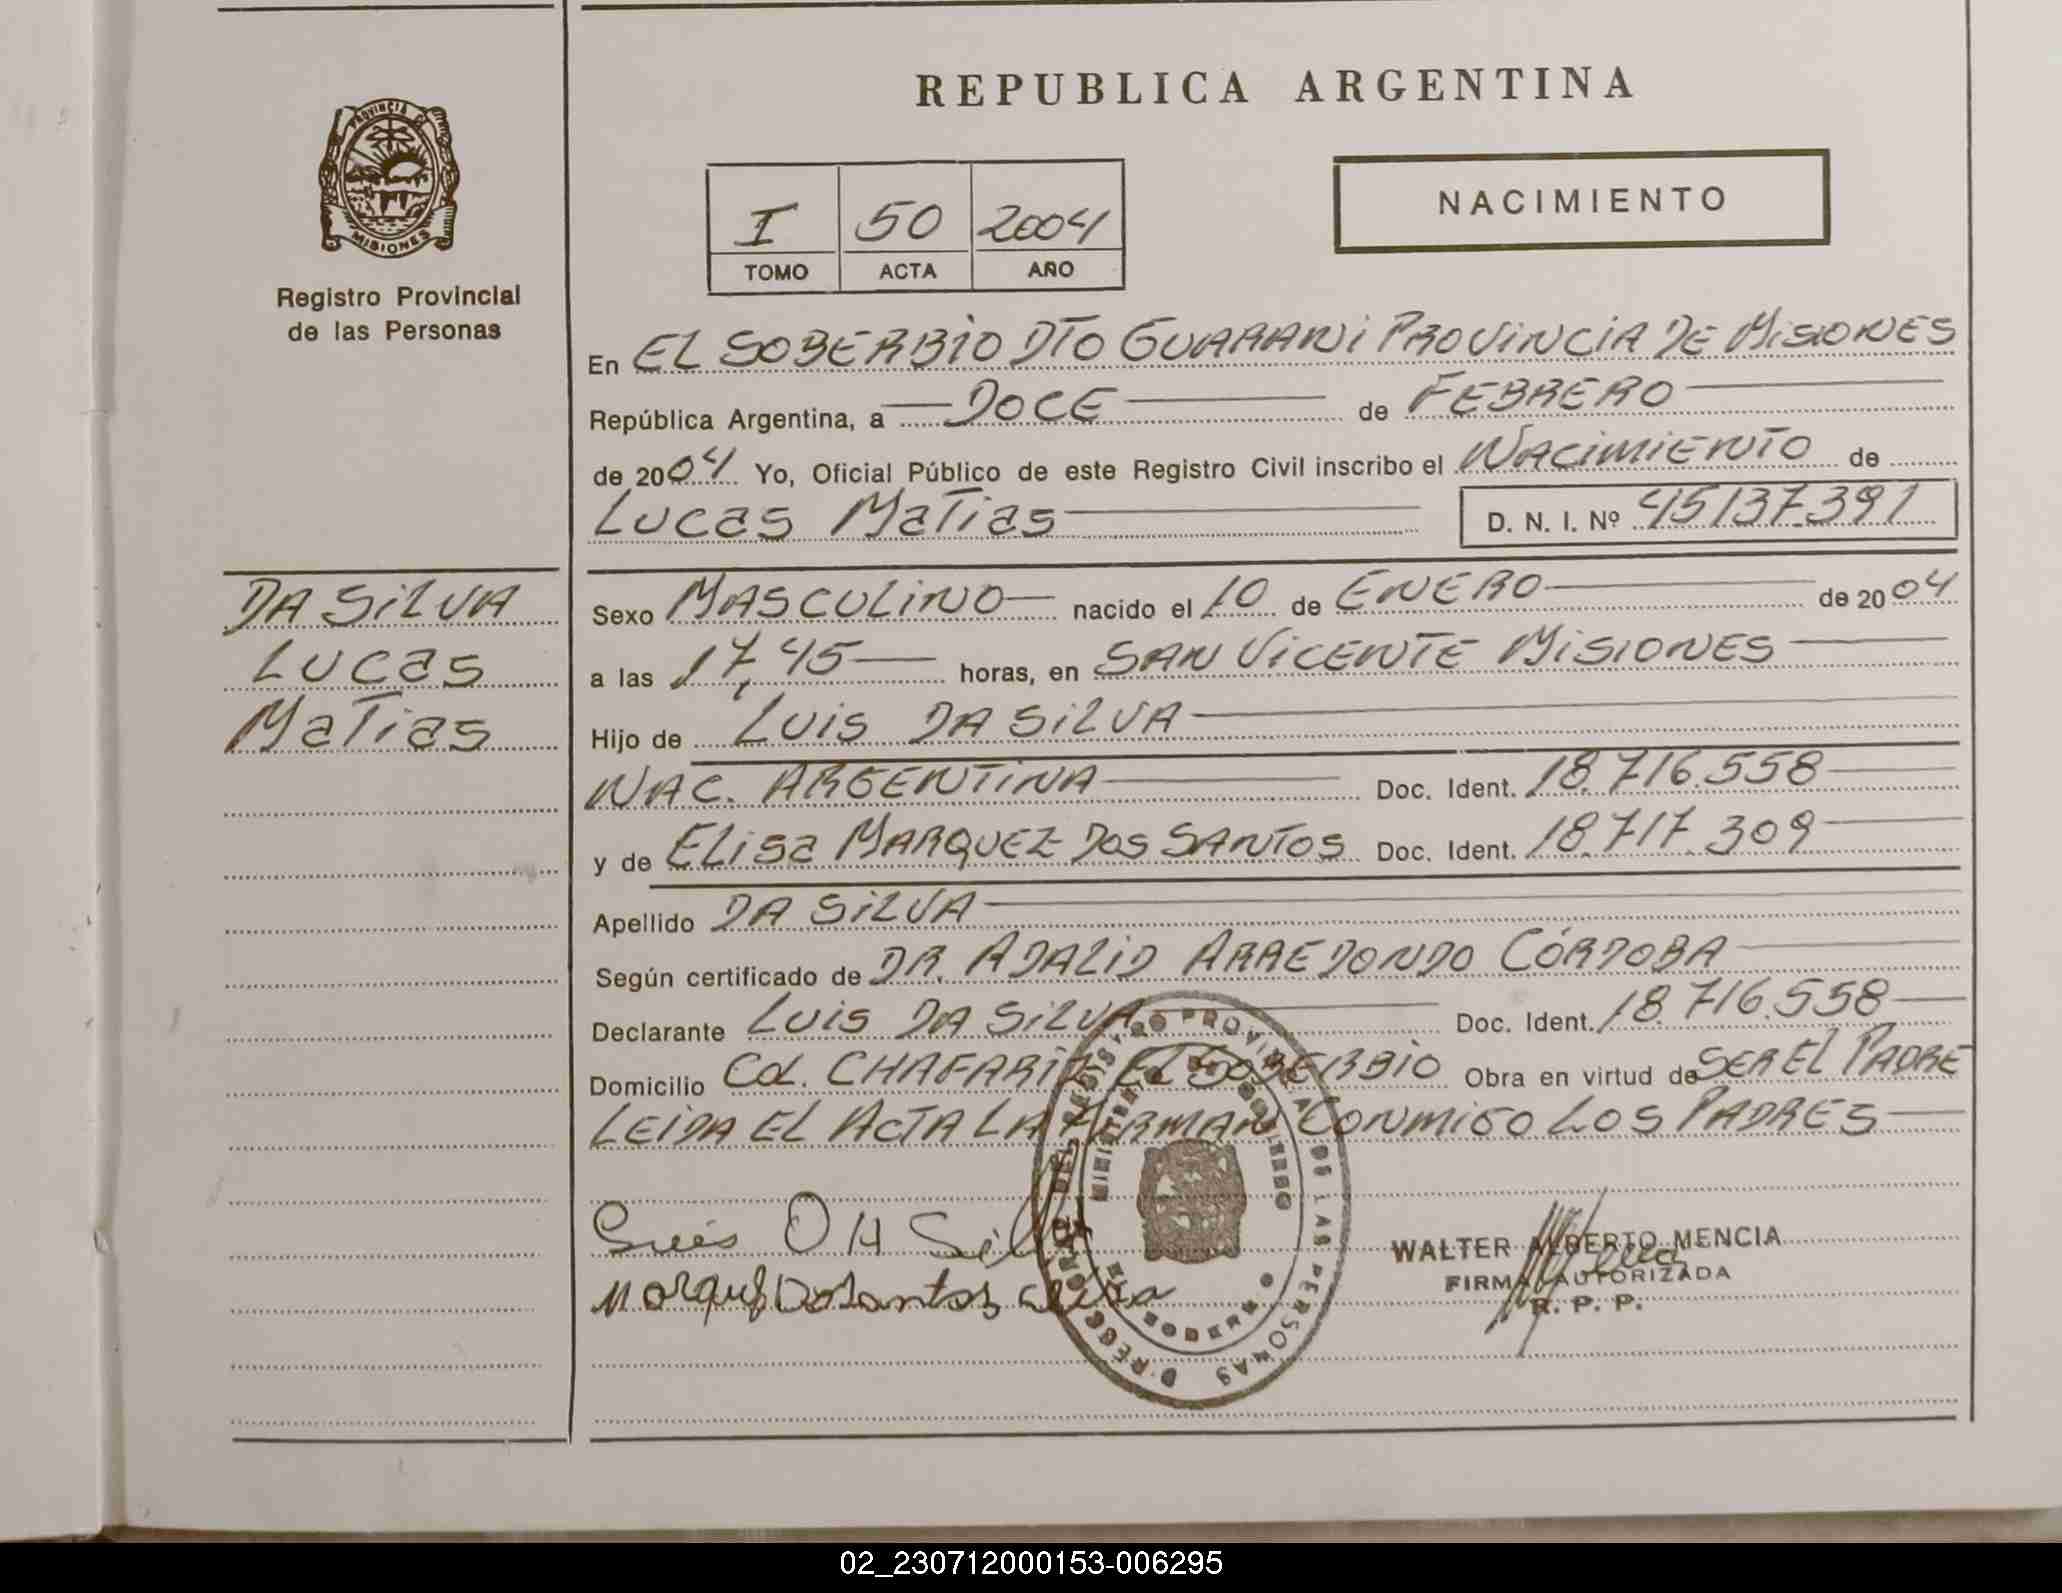 REPUBLICA ARGENTINA
PROVINCIA DE
MISIONES
Registro Provincial
de las Personas
I 50 2004
TOMO ACTA AÑO
NACIMIENTO
En EL SOBERBIO DTO GUARANI PROVINCIA DE MISIONES
República Argentina, a DOCE de FEBRERO
de 2004 Yo, Oficial Público de este Registro Civil inscribo el NACIMIENTO de
Lucas Matias D. N. I. Nº 45137391
DA SILVA
Lucas
Matias
Sexo MASCULINO nacido el 10 de ENERO de 2004
a las 17,45 horas, en SAN VICENTE MISIONES
Hijo de Luis DA SILVA
NAC. ARGENTINA Doc. Ident. 18.716.558
y de Elisa MARQUEZ DOS SANTOS Doc. Ident. 18.717.309
Apellido DA SILVA
Según certificado de DR. ADALID ARREDONDO CÓRDOBA
Declarante Luis DA SILVA Doc. Ident. 18.716.558
Domicilio Col. CHAFARIZ EL SOBERBIO Obra en virtud de SER EL PADRE
LEIDA EL ACTA LA FIRMAN CONMIGO LOS PADRES
DE LAS PERSONAS
WALTER ALBERTO MENCIA
FIRMA AUTORIZADA
R. P. P.
02_230712000153-006295